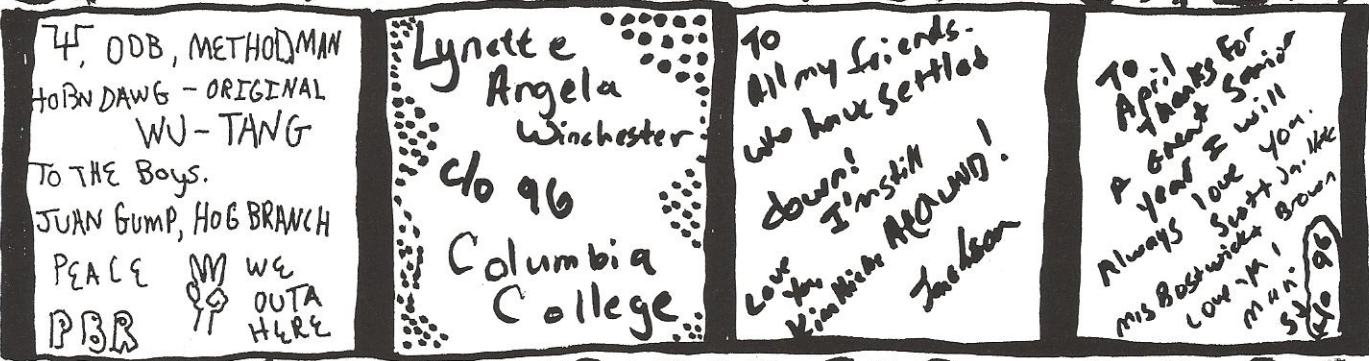 Ψ, ODB, METHODMAN
HOBN DAWG - ORIGINAL
WU-TANG
TO THE Boys.
JUAN GUMP, HOG BRANCH
PEACE
WE
OUTA
HERE
PBR
Lynette
Angela
Winchester
c/o 96
Columbia
College
TO
All my friends.
who have settled
down!
I'm still
AROUND!
Love
You
Kim Jackson
TO
April
Thanks For
A Great Senior
year I will
Always love you.
Scott
Mrs Bostwick Brown
Love
96